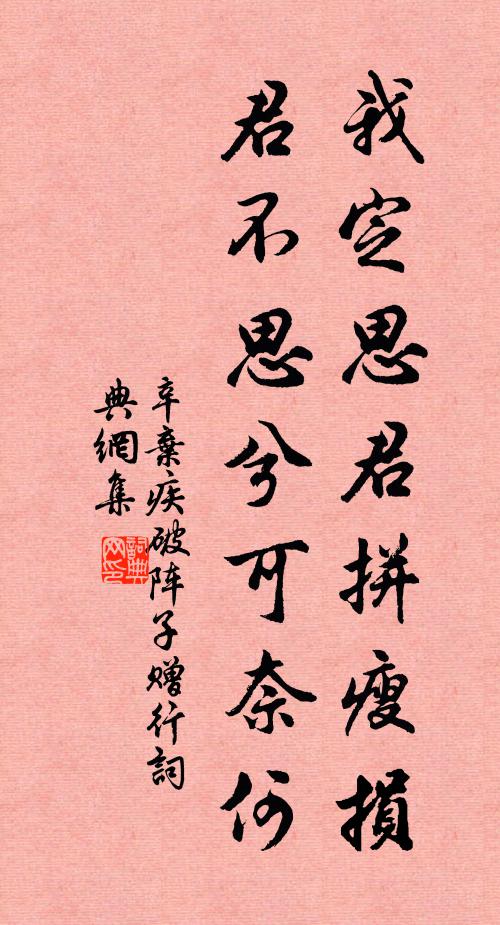 我定思君拼瘦損
君不思兮可奈何
辛棄疾破阵子赠行詞
典網集
詞典网印